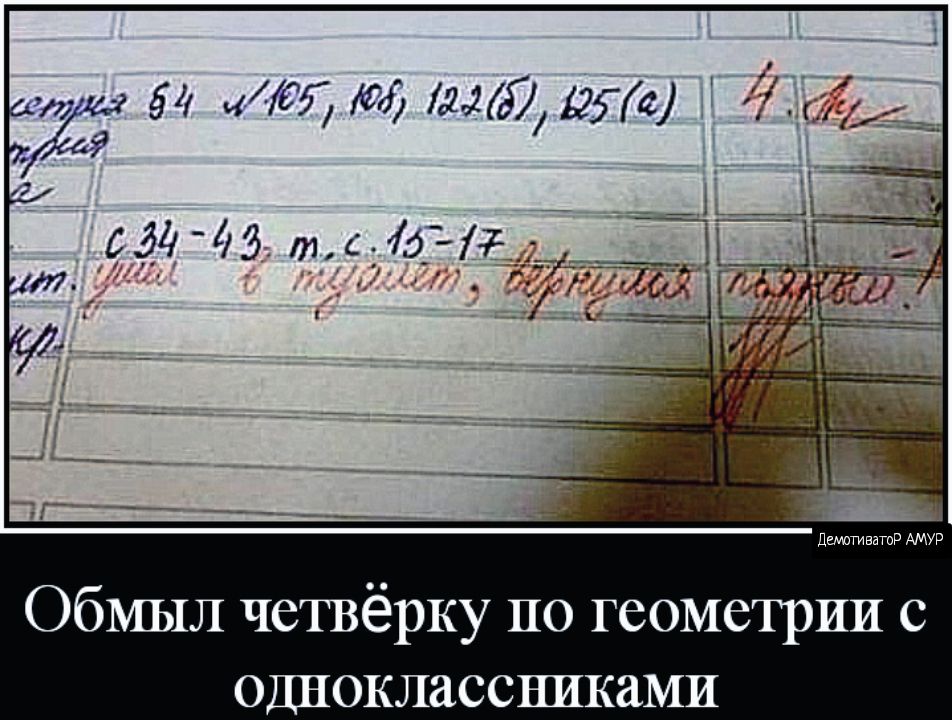 етрия §4 №105, 108, 122(б), 125(а) 4.
трия
а
с 34-43 т. с. 15-17
ит. ушел в туалет, вернулся пьяный!
кр.
ДемотиватоР АМУР
Обмыл четвёрку по геометрии с
одноклассниками